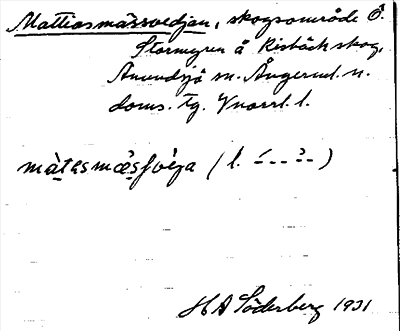 Mattiasmässvedjan, skogsområde Ö.
Stormyren å Risbäck skog,
Anundsjö sn. Ångerml. n.
doms. tg. Vnorrl. l.
màtasmæsfvéga (l. –́ – – –̀ –)
H A Söderberg 1931